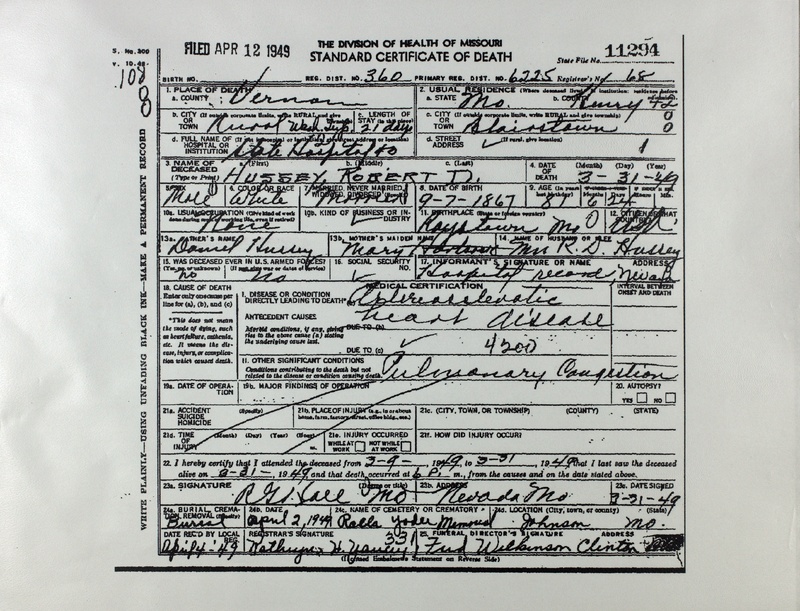 S. No. 300
v. 10.48
FILED APR 12 1949
THE DIVISION OF HEALTH OF MISSOURI
STANDARD CERTIFICATE OF DEATH
State File No. 11294
108
BIRTH NO. REG. DIST. NO. 360 PRIMARY REG. DIST. NO. 6225 Registrar's No. 68
1. PLACE OF DEATH
a. COUNTY Vernon
2. USUAL RESIDENCE (Where deceased lived. If institution: residence before
a. STATE Mo. b. COUNTY Henry
b. CITY (If outside corporate limits, write RURAL and give
OR TOWN Rural Wash. Twp.
c. LENGTH OF STAY (in this place) 21 days
c. CITY (If outside corporate limits, write RURAL and give township)
OR TOWN Blairstown
d. FULL NAME OF HOSPITAL OR INSTITUTION State Hospital
d. STREET ADDRESS (If rural, give location)
3. NAME OF DECEASED (Type or Print) a. (First) b. (Middle) c. (Last)
HUSSEY, ROBERT D.
4. DATE OF DEATH (Month) (Day) (Year)
3-31-49
5. SEX Male
6. COLOR OR RACE White
7. MARRIED, NEVER MARRIED, WIDOWED, DIVORCED Married
8. DATE OF BIRTH 9-7-1867
9. AGE (In years 6 24
10a. USUAL OCCUPATION (Give kind of work done during most of working life, even if retired) None
10b. KIND OF BUSINESS OR INDUSTRY
11. BIRTHPLACE (State or foreign country) Mo
12. CITIZEN OF WHAT COUNTRY?
13a. FATHER'S NAME Daniel Hussey
13b. MOTHER'S MAIDEN NAME Mary
14. NAME OF HUSBAND OR WIFE Mrs R. D. Hussey
15. WAS DECEASED EVER IN U.S. ARMED FORCES? (Yes, no, or unknown) (If yes, give war or dates of service)
no
16. SOCIAL SECURITY NO.
17. INFORMANT'S SIGNATURE OR NAME ADDRESS
Hospital record Nevada
18. CAUSE OF DEATH
Enter only one cause per line for (a), (b), and (c)
MEDICAL CERTIFICATION
INTERVAL BETWEEN ONSET AND DEATH
I. DISEASE OR CONDITION DIRECTLY LEADING TO DEATH* (a) Arteriosclerotic
heart disease
*This does not mean the mode of dying, such as heart failure, asthenia, etc. It means the disease, injury, or complication which caused death.
ANTECEDENT CAUSES
Morbid conditions, if any, giving rise to the above cause (a) stating the underlying cause last.
DUE TO (b)
DUE TO (c) 4200
11. OTHER SIGNIFICANT CONDITIONS
Conditions contributing to the death but not related to the disease or condition causing death.
Pulmonary Congestion
19a. DATE OF OPERATION
19b. MAJOR FINDINGS OF OPERATION
20. AUTOPSY?
YES NO
21a. ACCIDENT SUICIDE HOMICIDE (Specify)
21b. PLACE OF INJURY (e.g., in or about home, farm, factory, street, office bldg., etc.)
21c. (CITY, TOWN, OR TOWNSHIP) (COUNTY) (STATE)
21d. TIME OF INJURY (Month) (Day) (Year) (Hour) m.
21e. INJURY OCCURRED
WHILE AT WORK NOT WHILE AT WORK
21f. HOW DID INJURY OCCUR?
22. I hereby certify that I attended the deceased from 3-9, 1949, to 3-31, 1949, that I last saw the deceased
alive on 3-31-, 1949, and that death occurred at 6 P. m., from the causes and on the date stated above.
23a. SIGNATURE (Degree or title)
P. G. Hall MD
23b. ADDRESS Nevada Mo.
23c. DATE SIGNED 3-31-49
24a. BURIAL, CREMATION, REMOVAL (Specify) Burial
24b. DATE April 2, 1949
24c. NAME OF CEMETERY OR CREMATORY
24d. LOCATION (City, town, or county) (State)
Johnson Mo.
DATE REC'D BY LOCAL REG. April 4 '49
REGISTRAR'S SIGNATURE Kathryn H. Yancey
331
25. FUNERAL DIRECTOR'S SIGNATURE ADDRESS
Fred Wilkinson Clinton
(Licensed Embalmer's Statement on Reverse Side)
WRITE PLAINLY—USING UNFADING BLACK INK—MAKE A PERMANENT RECORD